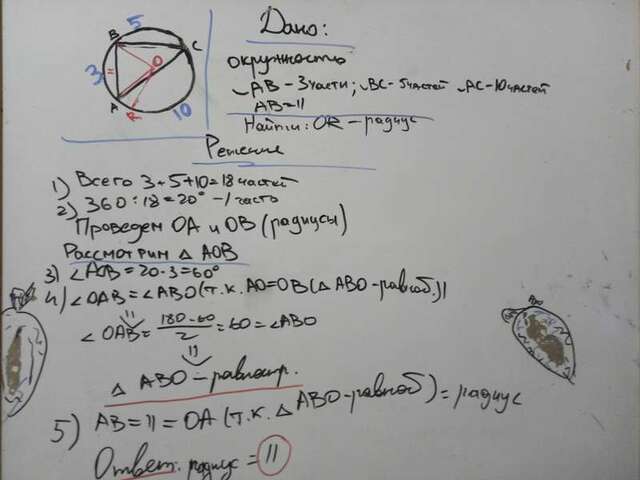 Дано:
окружность
◡AB – 3 части; ◡BC – 5 частей ◡AC – 10 частей
AB = 11
Найти: OR – радиус
B 5 C
3 O
A R 10
Решение
1) Всего 3+5+10=18 частей
2) 360:18=20° – 1 часть
Проведем OA и OB (радиусы)
Рассмотрим △ AOB
3) ∠AOB = 20·3=60°
4) ∠OAB = ∠ABO (т.к. AO=OB (△ ABO – равноб.))
∠OAB = 180-60/2 = 60 = ∠ABO
△ ABO – равностр.
5) AB = 11 = OA (т.к. △ ABO – равноб) = радиус
Ответ: радиус = 11